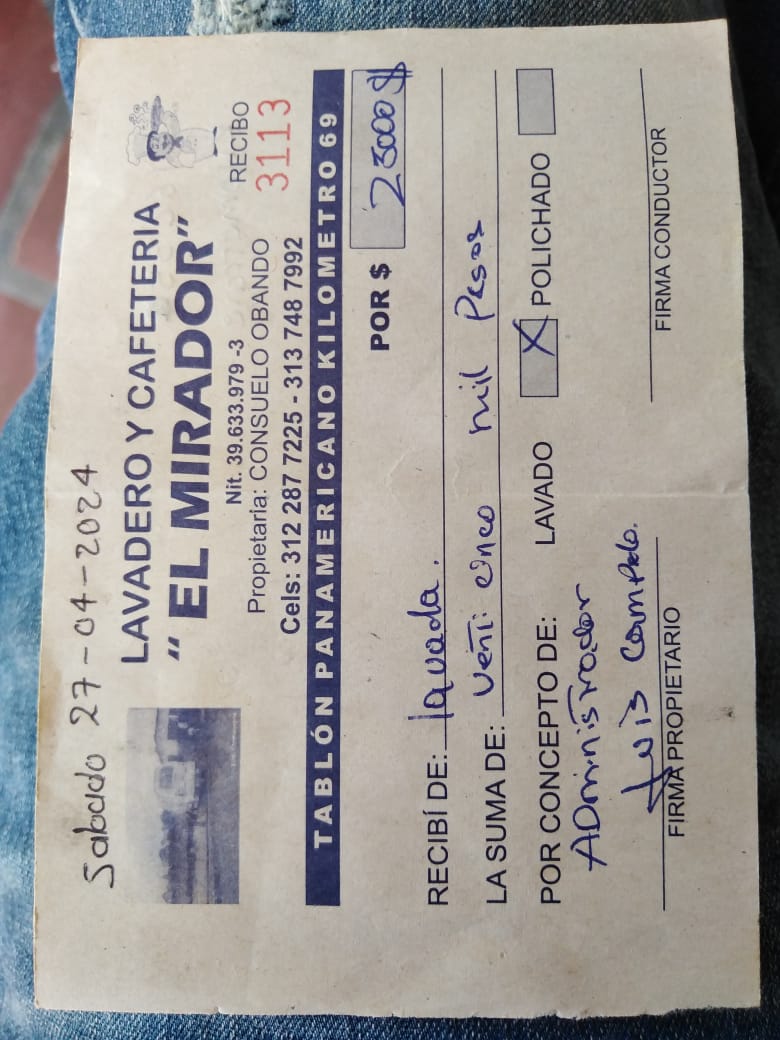 Sabado 27-04-2024
LAVADERO Y CAFETERIA
"EL MIRADOR"
RECIBO
3113
Nit. 39.633.979 -3
Propietaria: CONSUELO OBANDO
Cels: 312 287 7225 - 313 748 7992
TABLÓN PANAMERICANO KILOMETRO 69
POR $ 25000 $
RECIBÍ DE: lavada.
LA SUMA DE: venti cinco mil Pesos
POR CONCEPTO DE: LAVADO X POLICHADO
ADministrador
Luis
FIRMA PROPIETARIO
FIRMA CONDUCTOR